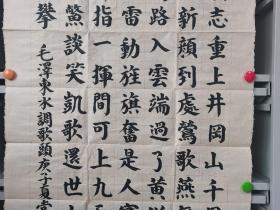 志重上井岡山千
新顏到處鶯歌燕
路入雲端過了黃
雷動旌旗奮是人
指一揮間可上九
鱉談笑凱歌還世上
攀
毛澤東水調歌頭庚子夏